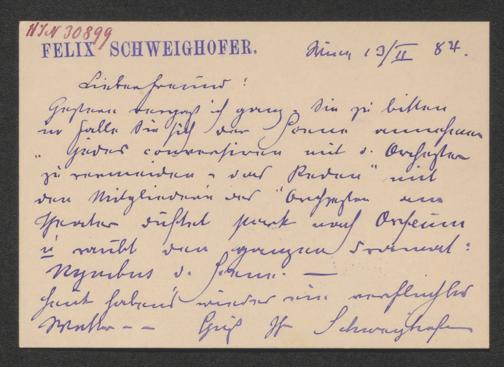 HIN 30899
FELIX SCHWEIGHOFER.
Wien 13/II 84.
Lieber Freund!
Gestern vergaß ich ganz, Sie zu bitten
im Falle Sie sich der Scene annehmen
"jedes conversiren mit d. Orchester
zu vermeiden – das Reden" mit
den Mitgliedern des "Orchester am
Theater duftet stark nach Orfeum
u raubt den ganzen dramat:
Nymbus d. Scene. —
Heut haben's wieder ein verfluchtes
Wetter – – Gruß Ihr Schweighofer